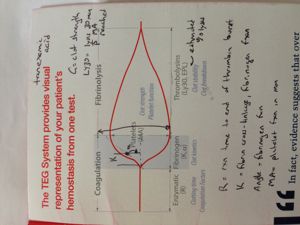 tranexamic
acid
G = clot strength
LY30 = lysis 30 min
p MA
reached
The TEG System provides visual
representation of your patient's
hemostasis from one test.
Coagulation
Fibrinolysis
Enzymatic
Fibrinogen
(K, α)
Platelets
(MA)
Thrombolysins
(Ly30, EPL)
Clotting time
Clot kinetics
Clot strength
Clot stability
Coagulation factors
Platelet function
Clot breakdown
R = min time to end of thrombin burst
K = fibrin cross-linking, fibrinogen fxn
Angle = fibrinogen fxn
MA = platelet fxn in mm
In fact, evidence suggests that over